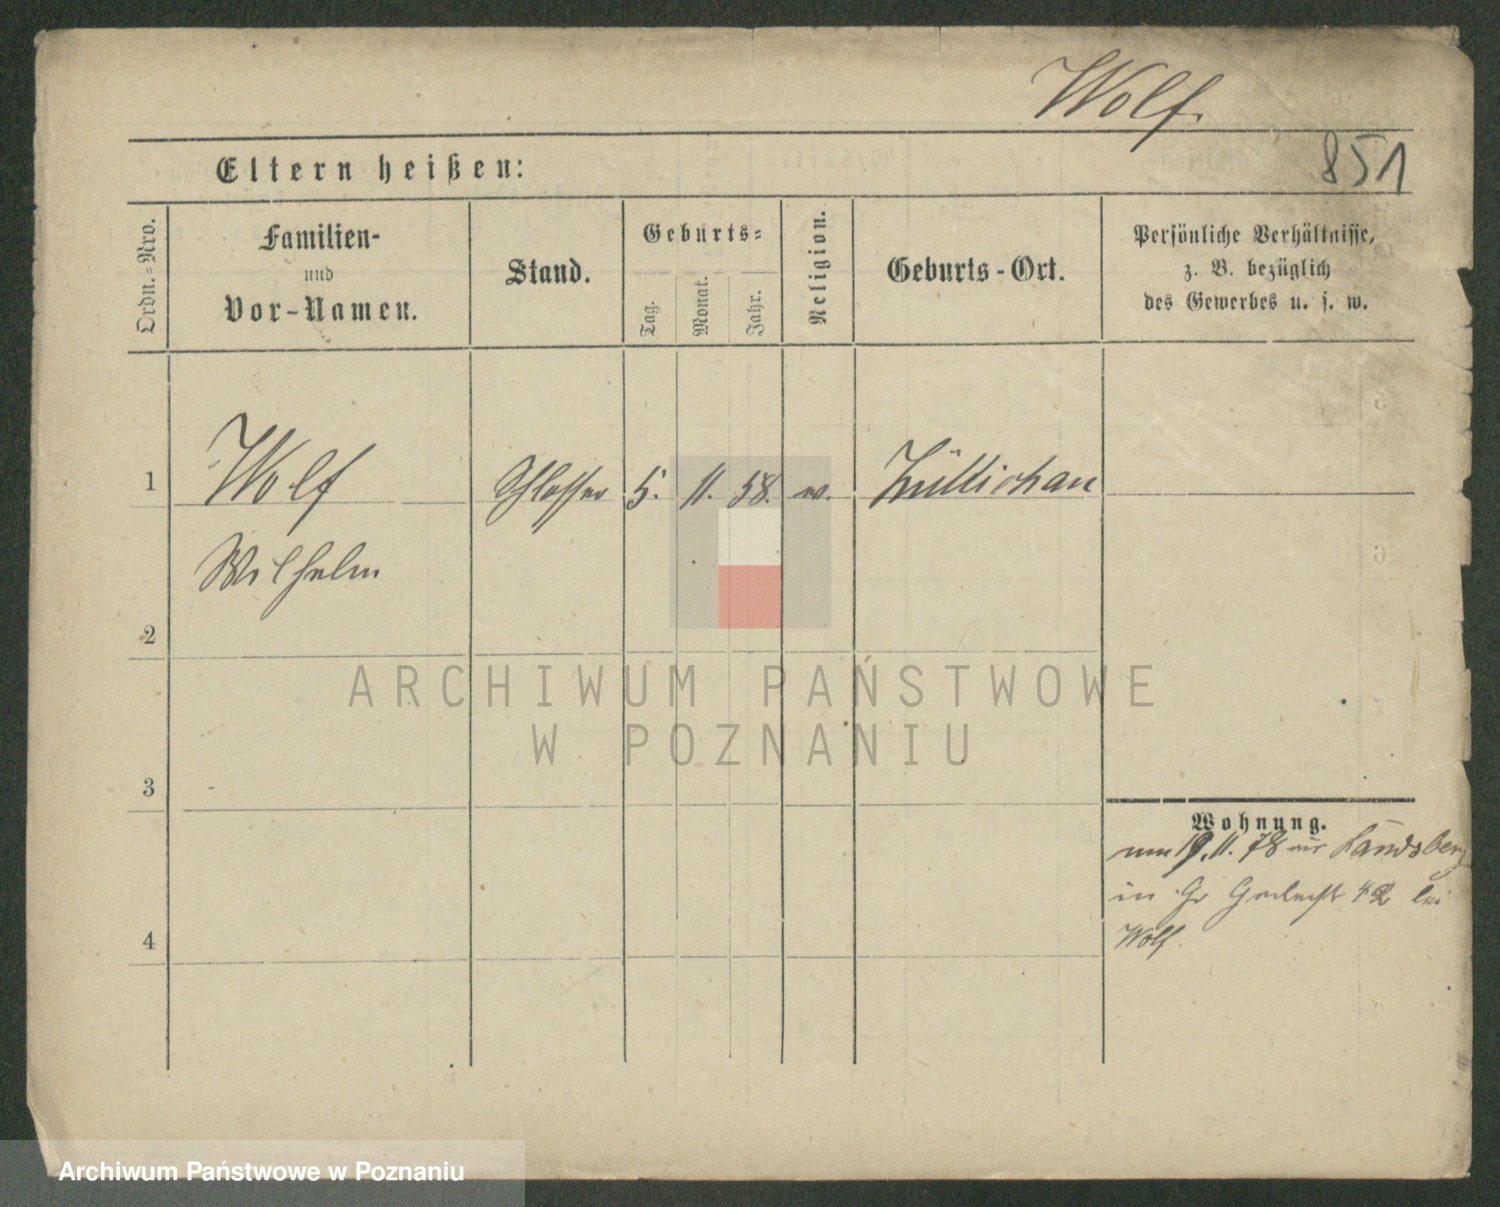 Wolf.
851
Eltern heißen:
Ordn.-Nro.
Familien-
und
Vor-Namen.
Stand.
Geburts-
Tag.
Monat.
Jahr.
Religion.
Geburts-Ort.
Persönliche Verhältnisse,
z. B. bezüglich
des Gewerbes u. s. w.
1 Wolf Schlosser 5. 11. 58. ev. Züllichau
Wilhelm
2
3
4
Wohnung.
19.11.78 Landsberg
in Gr 42 bei
Wolf.
ARCHIWUM PAŃSTWOWE
W POZNANIU
Archiwum Państwowe w Poznaniu